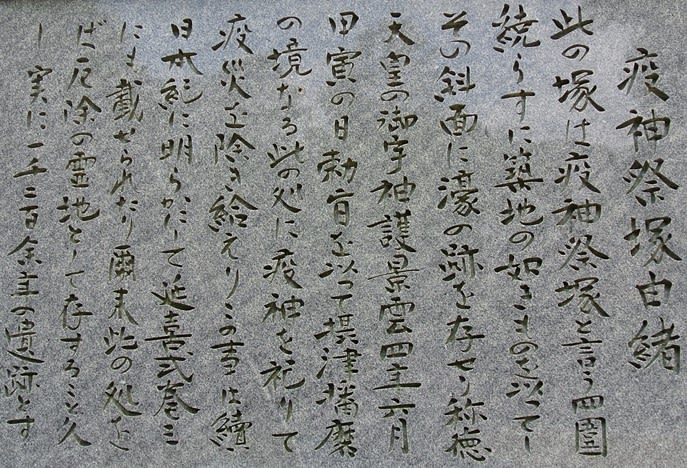 疫神祭塚由緒
此の塚は疫神祭塚と言う四圍
繞らすに築地の如きものを以ってし
その斜面に濠の跡を存せり称徳
天皇の御宇神護景雲四年六月
甲寅の日勅旨を以って摂津播磨
の境なる此の処に疫神を祀りて
疫災を除き給えりこの事は續
日本紀に明らかにして延喜式巻三
にも載せられたり爾来此の処を
ば厄除の霊地として存すること久
し実に一千二百余年の遺跡とす